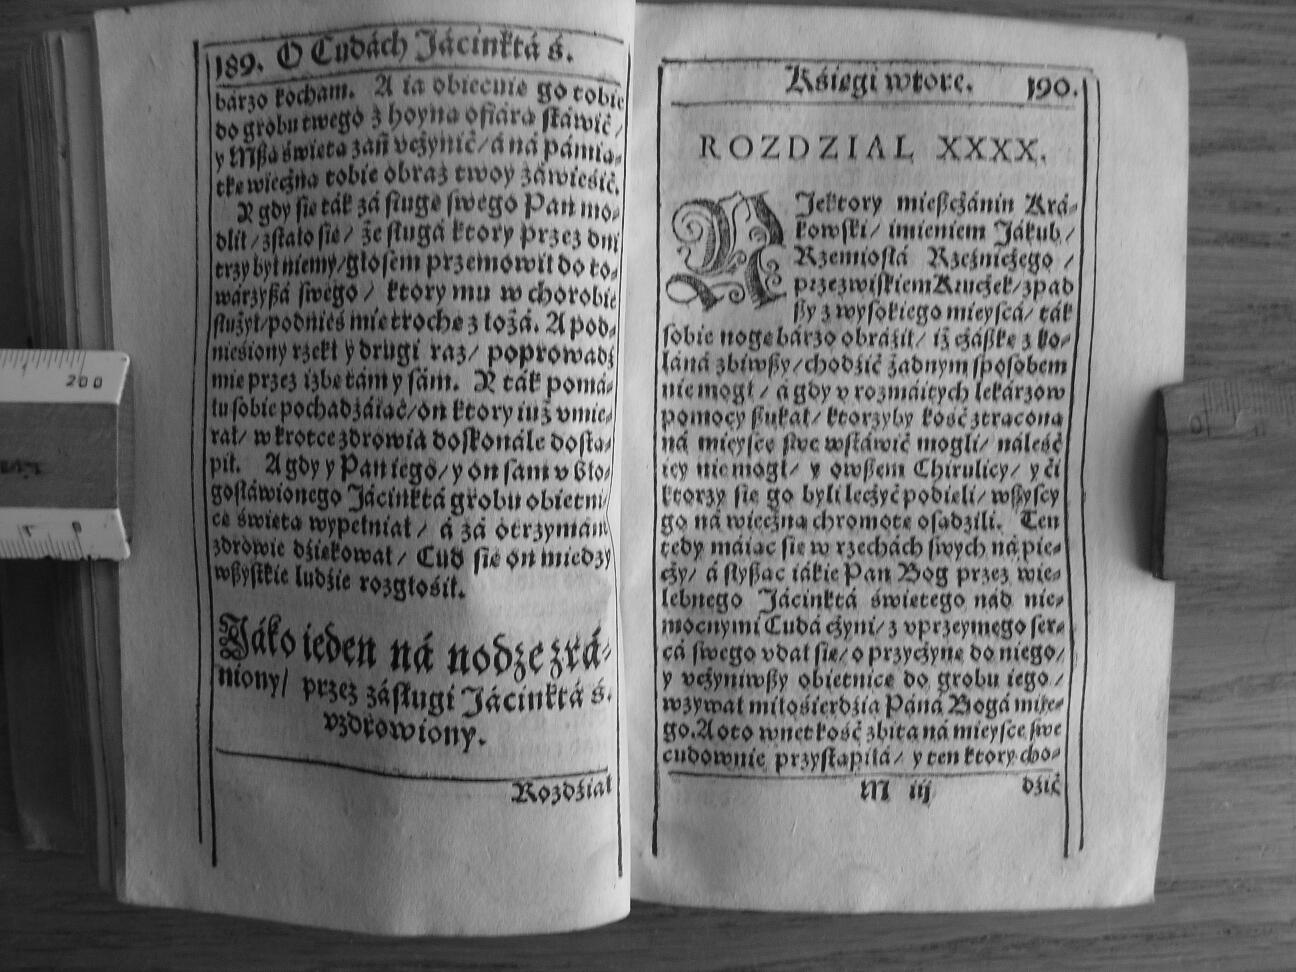 189. O Cudách Jácinktá ś.
bárzo kocham. A ia obiecuię go tobie
do grobu twego z hoyną ofiárą stáwić /
y Mszą świetą zań vczynić / á ná pámią-
tkę wieczną tobie obraz twoy záwieśić.
Y gdy sie ták zá sługę swego Pan mo-
dlił / zstáło sie / że sługá ktory przez dni
trzy był niemy / głosem przemowił do to-
wárzyszá swego / ktory mu w chorobie
służył / podnieś mię trochę z łożá. A pod-
nieśiony rzekł y drugi raz / poprowadź
mię przez izbę tám y sám. Y ták pomá-
łu sobie pochadzáiąc / on ktory iuż vmie-
rał / wkrotce zdrowia doskonále dostá-
pił. A gdy y Pan iego / y on sam v Bło-
gosłáwionego Jácinktá grobu obietni-
ce święta wypełniał / á zá otrzymáne
zdrowie dźiękował / Cud sie on miedzy
wszystkie ludźie rozgłośił.
Jáko ieden ná nodze zrá-
niony / przez zásługi Jácinktá ś.
vzdrowiony.
Rozdźiał
Kśięgi wtore. 190.
ROZDZIAL XXXX.
NJektory mieszczánin Krá-
kowski / imieniem Jákub /
Rzemiosłá Rzeźniczego /
przezwiskiem Kruczek / zpad
szy z wysokiego mieyscá / ták
sobie nogę bárzo obráźił / iż czászkę z ko-
láná zbiwszy / chodźić żadnym sposobem
nie mogł / á gdy v rozmáitych lekárzow
pomocy szukał / ktorzyby kość ztraconą
ná mieysce swe wstáwić mogli / náleść
iey nie mogł / y owszem Chirulicy / y ći
ktorzy sie go byli leczyć podieli / wszyscy
go ná wieczną chromotę osadzili. Ten
tedy máiąc sie w rzechách swych ná pie-
czy / á słysząc iákie Pan Bog przez wie-
lebnego Jácinktá świętego nád nie-
mocnymi Cudá czyni / z vprzeymego ser-
cá swego vdał sie / o przyczynę do niego /
y vczyniwszy obietnicę do grobu iego /
wzywał miłosierdźia Páná Bogá miłe-
go. A oto wnet kość zbita ná mieysce swe
cudownie przystąpiłá / y ten ktory cho-
M iij dźić
200